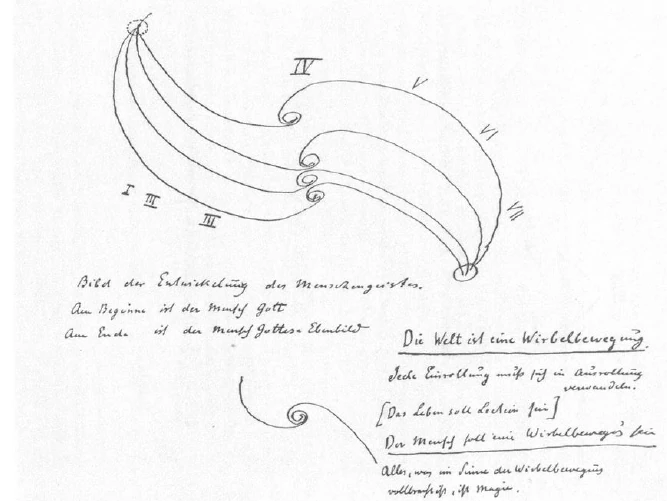 IV
V
VI
VII
I III
III
Bild der Entwickelung des Menschengeistes.
Am Beginne ist der Mensch Gott
Am Ende ist der Mensch Gottes Ebenbild
Die Welt ist eine Wirbelbewegung.
Jede Einrollung muß sich in Ausrollung
verwandeln.
[Das Leben soll sein]
Der Mensch soll eine Wirbelbewegung sein
Alles, was im Sinne der Wirbelbewegung
vollbracht ist, ist Magie.